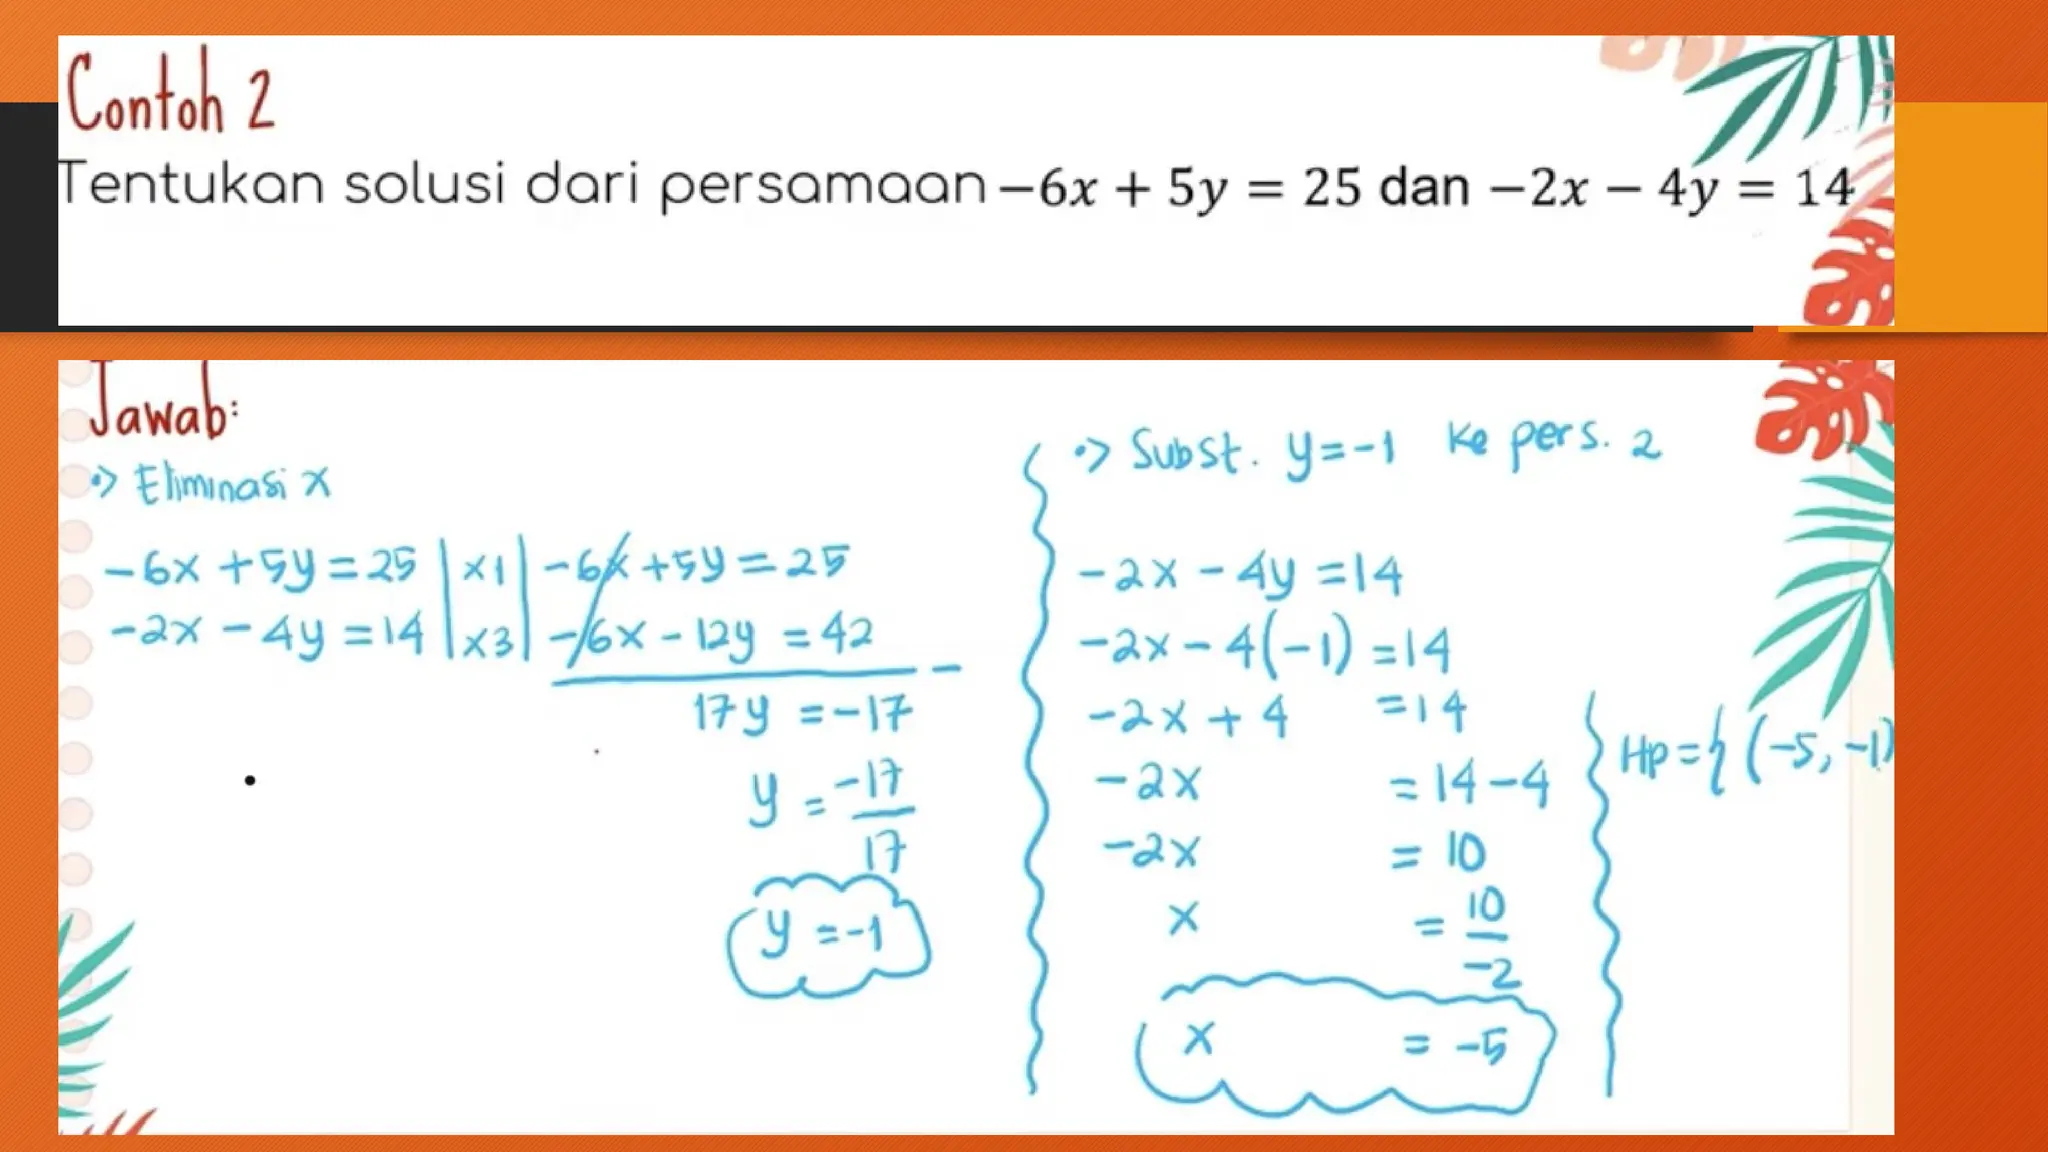 Contoh 2
Tentukan solusi dari persamaan −6x + 5y = 25 dan −2x − 4y = 14
Jawab:
•> Eliminasi x
-6x + 5y = 25 | x1 | -6x + 5y = 25
-2x - 4y = 14 | x3 | -6x - 12y = 42
-
17y = -17
y = -17
17
y = -1
•> Subst. y = -1 ke pers. 2
-2x - 4y = 14
-2x - 4(-1) = 14
-2x + 4 = 14
-2x = 14 - 4
-2x = 10
x = 10
-2
x = -5
Hp = { (-5, -1)